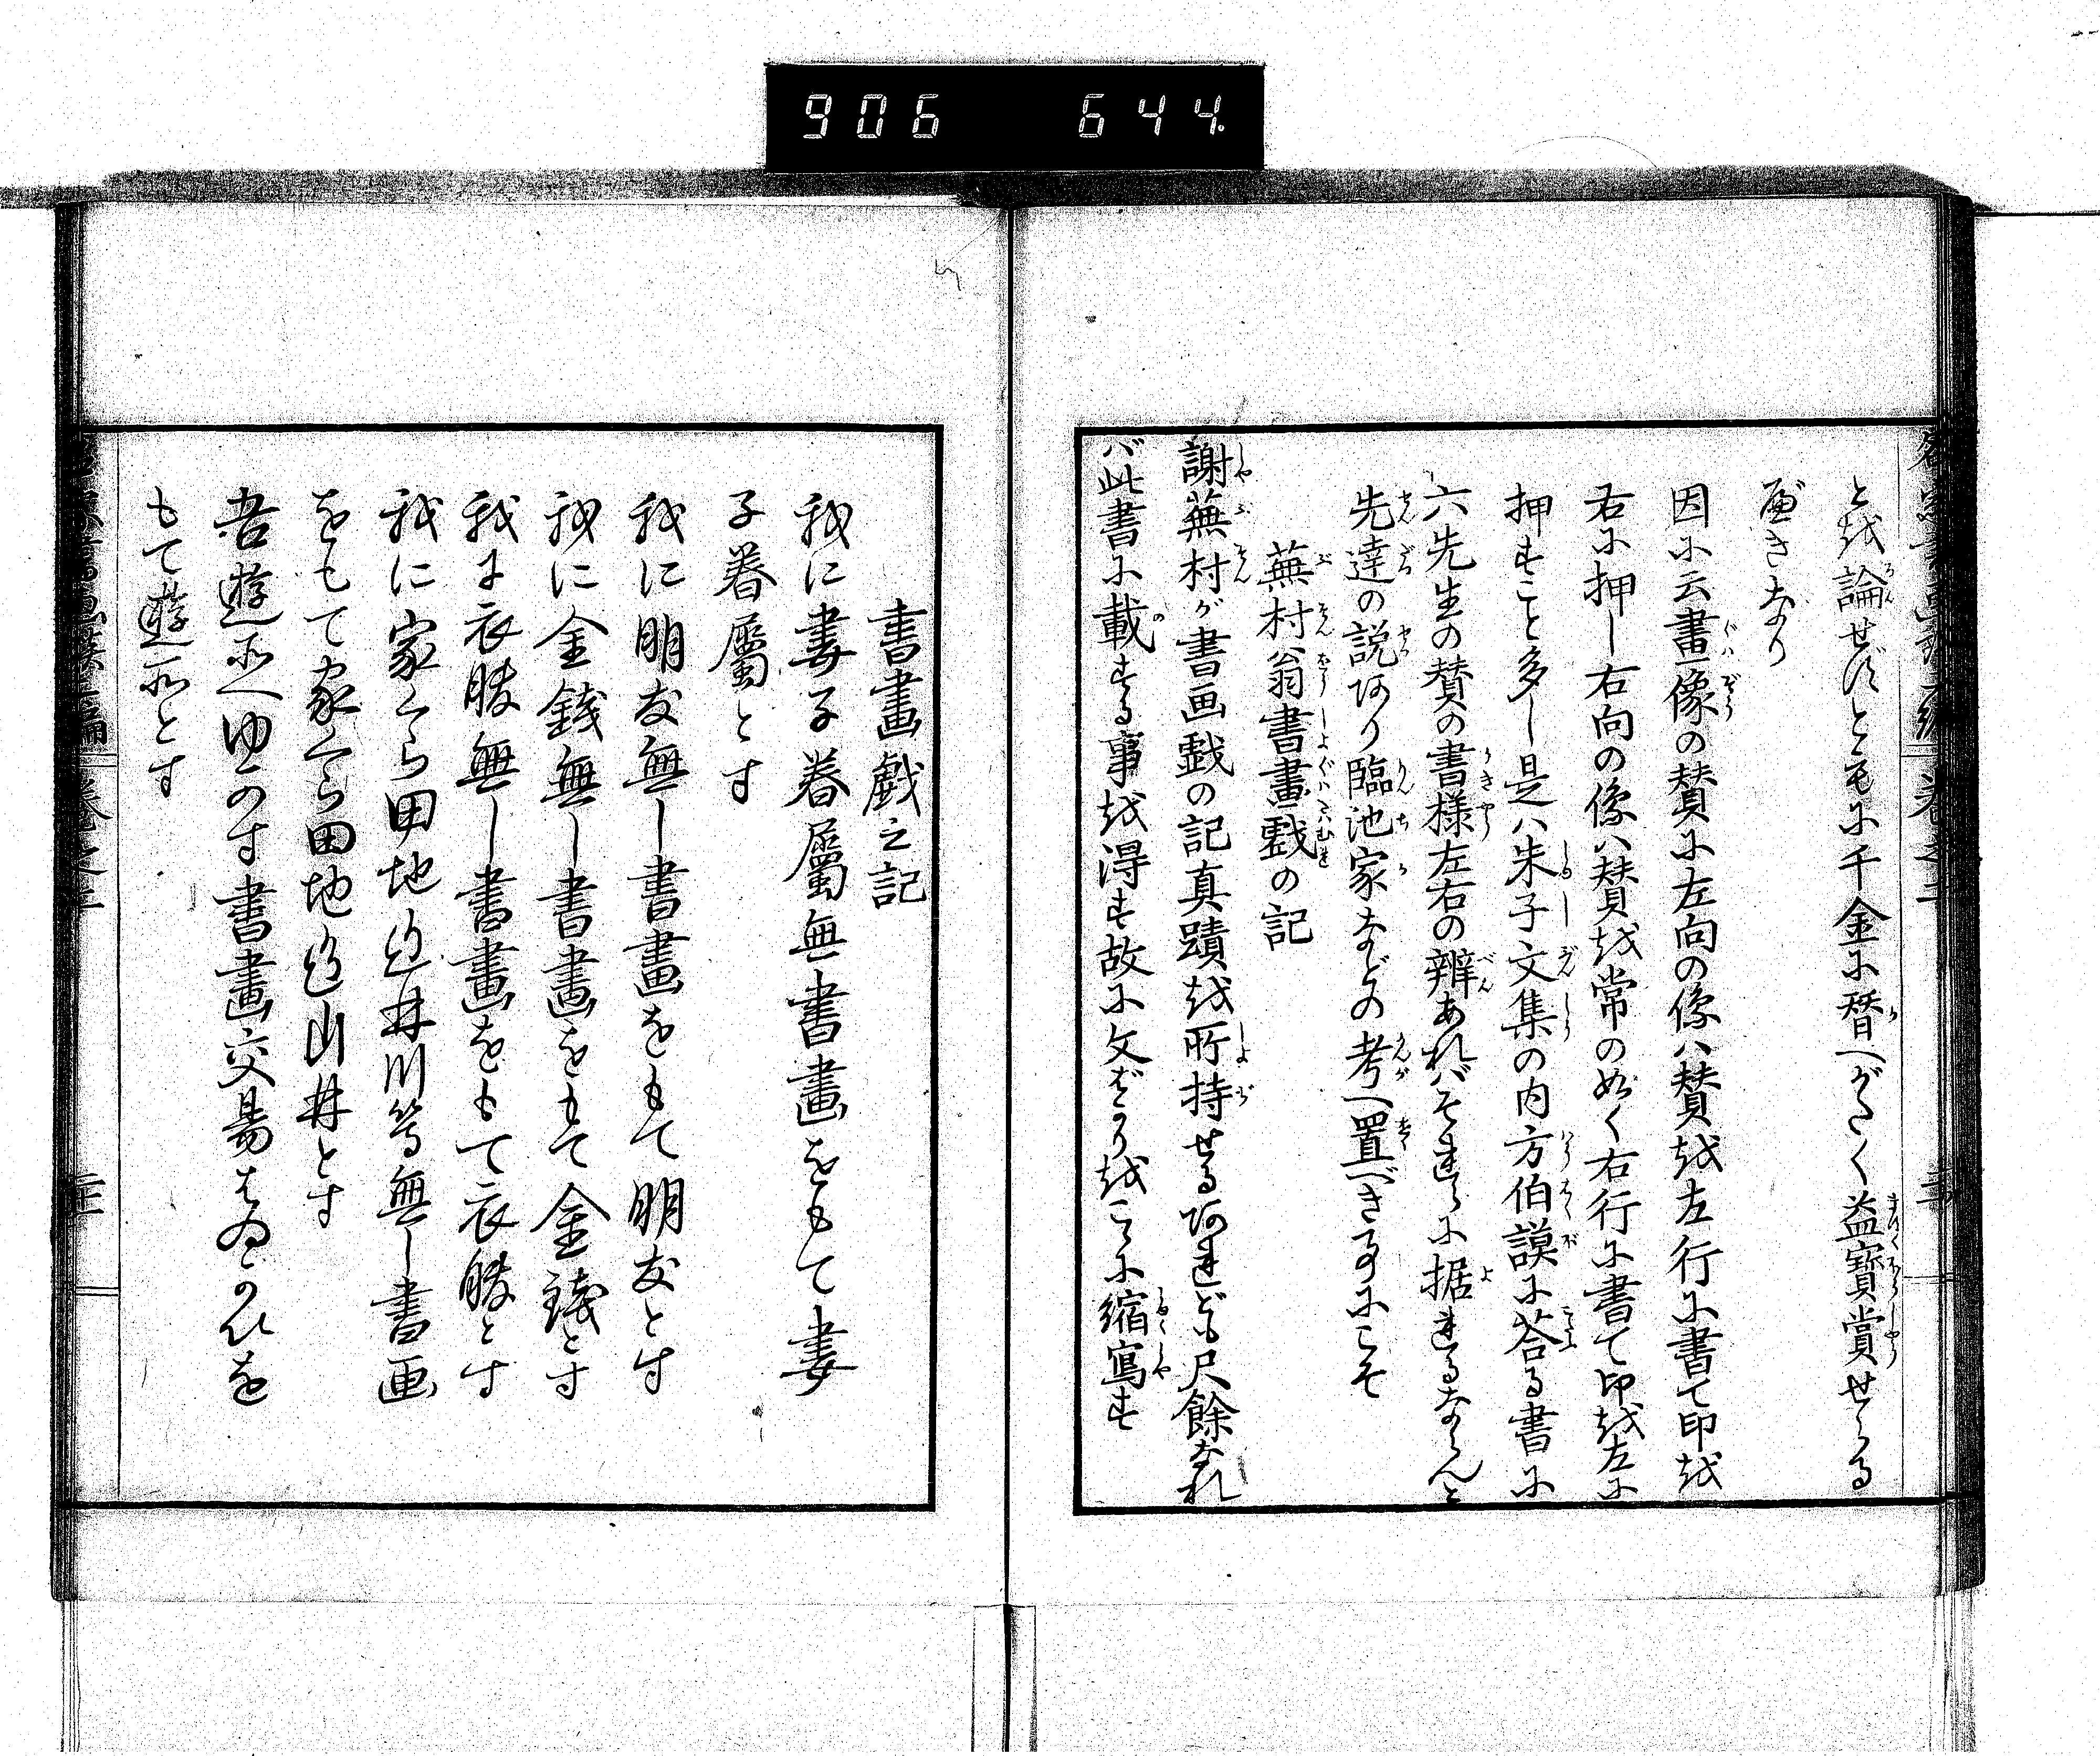 906 644.
と越論せずともに千金に替へがたく益寳賞せらる
べきなり
因に云畫像の賛に左向の像ハ賛越左行に書て印越
右に押し右向の像ハ賛越常の如く右行に書て印越左に
押すこと多し是ハ朱子文集の内方伯謨に答る書に
六先生の賛の書様左右の辨あればそれらに据れるならんと
先達の説あり臨池家などの考へ置べき事にこそ
蕪村翁書畫戯の記
謝蕪村が書画戯の記真蹟越所持せるあれども尺餘なれ
バ此書に載する事越得ず故に文ばかり越こゝに縮寫す
書畫戯之記
我に妻子眷屬無書畫をもて妻
子眷屬とす
我に朋友無し書畫をもて朋友とす
我に金錢無し書畫をもて金錢とす
我に衣勝無し書畫をもて衣勝とす
我に家くら田地山林川等無し書画
をもて家くら田地山林とす
吾遊所へゆかす書畫交易
もて遊所とす